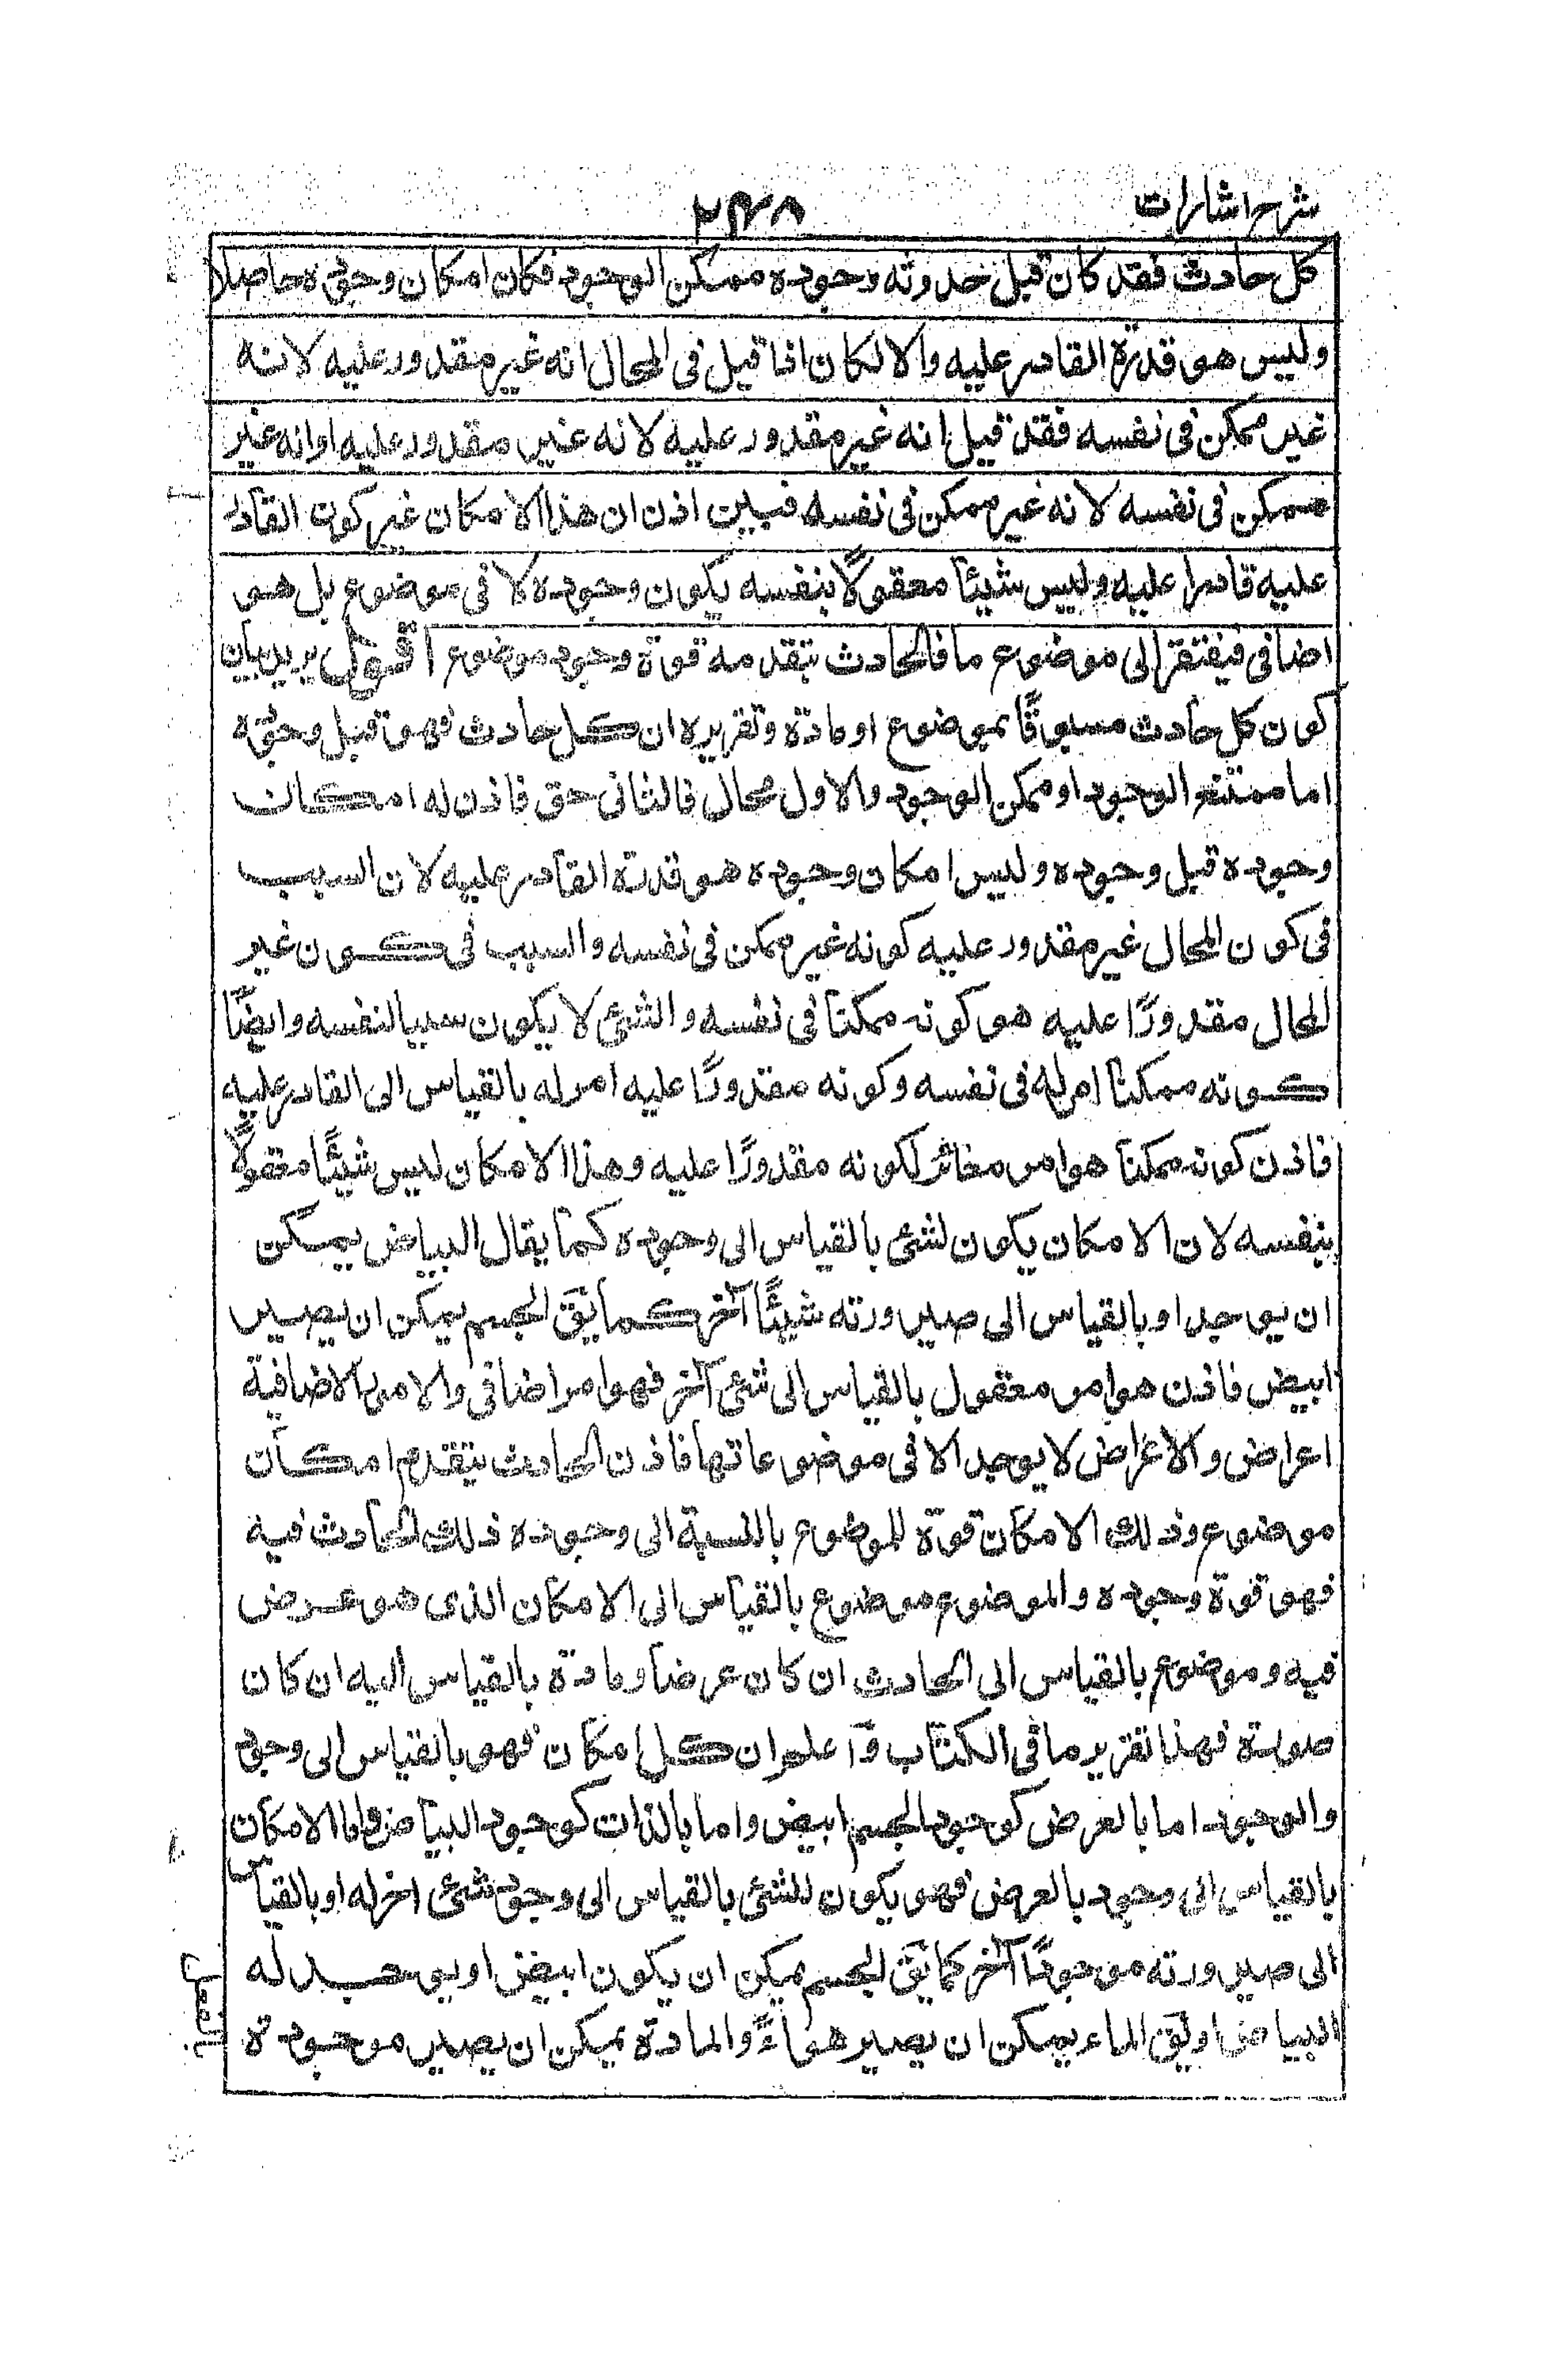 شرح اشارات ٢٣٨
كل حادث فقد كان قبل حدوثه وجوده ممكن الوجود فكان امكان وجوده حاصلا
وليس هو قدرة القادر عليه والا لكان اذا قيل فى المحال انه غير مقدور عليه لانه
غير ممكن فى نفسه فقد قيل انه غير مقدور عليه لانه غير مقدور عليه او انه غير
ممكن فى نفسه لانه غير ممكن فى نفسه فبين اذن ان هذا الامكان غير كون القادر
عليه قادرا عليه وليس شيئاً معقولاً بنفسه يكون وجوده لا فى موضوع بل هو
اضافى فيفتقر الى موضوع ما فالحادث يتقدمه قوة وجود موضوع اقول يريد بيان
كون كل حادث مسبوقًا بموضوع او مادة وتقريره ان كل حادث فهو قبل وجوده
اما ممتنع الوجود او ممكن الوجود والاول محال فالثانى حق فاذن له امكان
وجوده قبل وجوده وليس امكان وجوده هو قدرة القادر عليه لان السبب
فى كون المحال غير مقدور عليه كونه غير ممكن فى نفسه والسبب فى كون غير
المحال مقدورًا عليه هو كونه ممكنا فى نفسه والشئ لا يكون سببا لنفسه وايضًا
كونه ممكناً امر له فى نفسه وكونه مقدورًا عليه امر له بالقياس الى القادر عليه
فاذن كونه ممكناً هو امر مغائر لكونه مقدورًا عليه وهذا الامكان ليس شيئًا معقولًا
بنفسه لان الامكان يكون لشئ بالقياس الى وجوده كما يقال البياض يمكن
ان يوجد او بالقياس الى صيرورته شيئًا آخر كما يق الجسم يمكن ان يصير
ابيض فاذن هو امر معقول بالقياس الى شئ آخر فهو امر اضافى والامور الاضافية
اعراض والاعراض لا يوجد الا فى موضوعاتها فاذن الحادث يتقدم امكان
موضوع وذلك الامكان قوة للموضوع بالنسبة الى وجوده ذلك الحادث فيه
فهو قوة وجوده والموضوع موضوع بالقياس الى الامكان الذى هو عرض
فيه وموضوع بالقياس الى الحادث ان كان عرضاً ومادة بالقياس اليه ان كان
صورة فهذا تقرير ما فى الكتاب وآ علم ان كل امكان فهو بالقياس الى وجود
والوجود اما بالعرض كوجود الجسم ابيض واما بالذات كوجود البياض واما الامكان
بالقياس الى وجود بالعرض فهو يكون للشئ بالقياس الى وجود شئ اخر له او بالقياس
الى صيرورته موجودًا آخر كما يق الجسم يمكن ان يكون ابيض او يوجد له
البياض او يق الماء يمكن ان يصير هواءً والمادة يمكن ان يصير موجودة